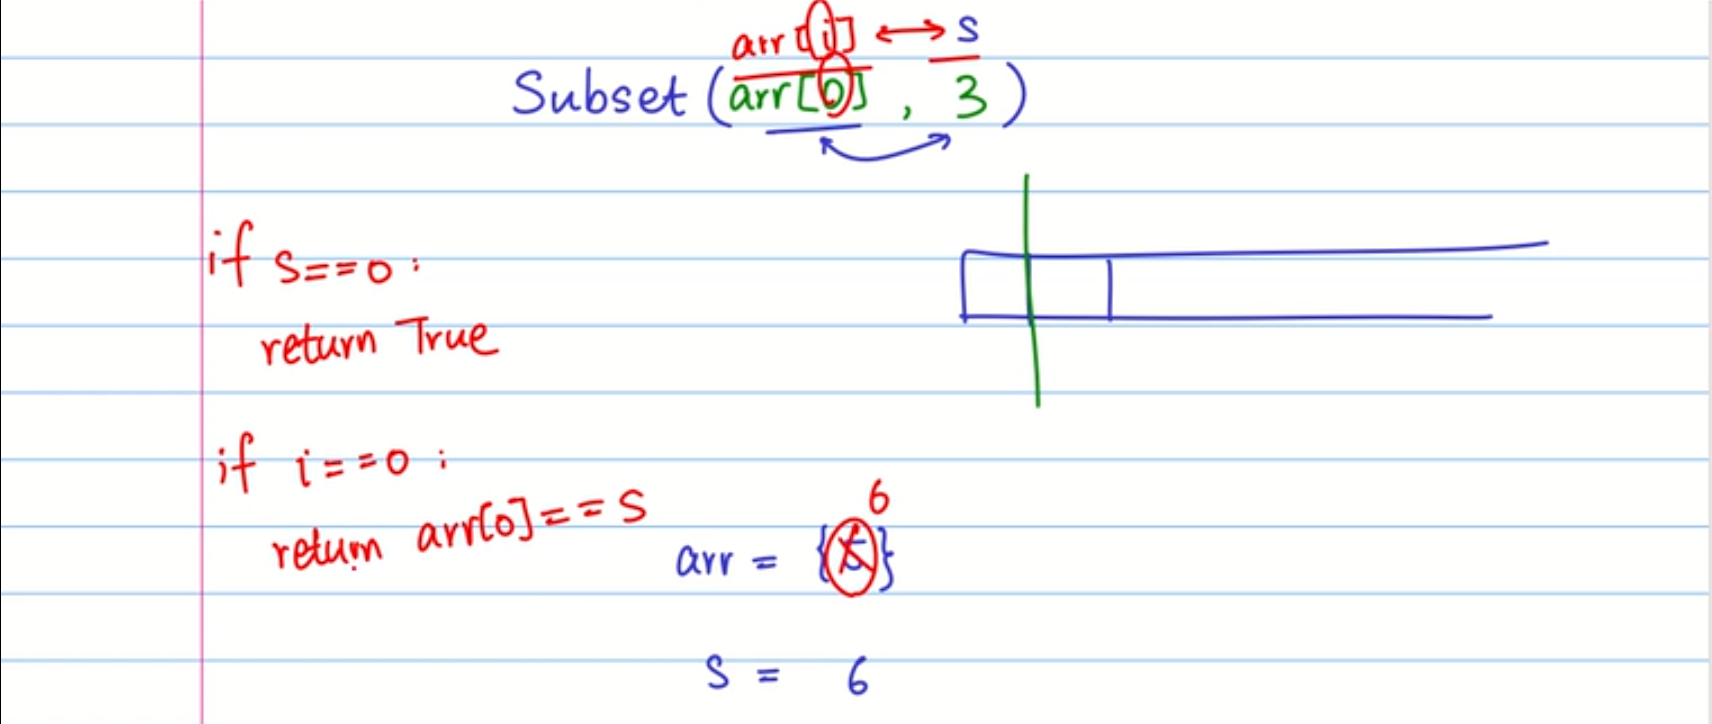 arr[i] ↔ s
Subset (arr[0] , 3 )
if s==0 :
return True
if i==0 :
return arr[0]==S
6
arr = {5}
S = 6